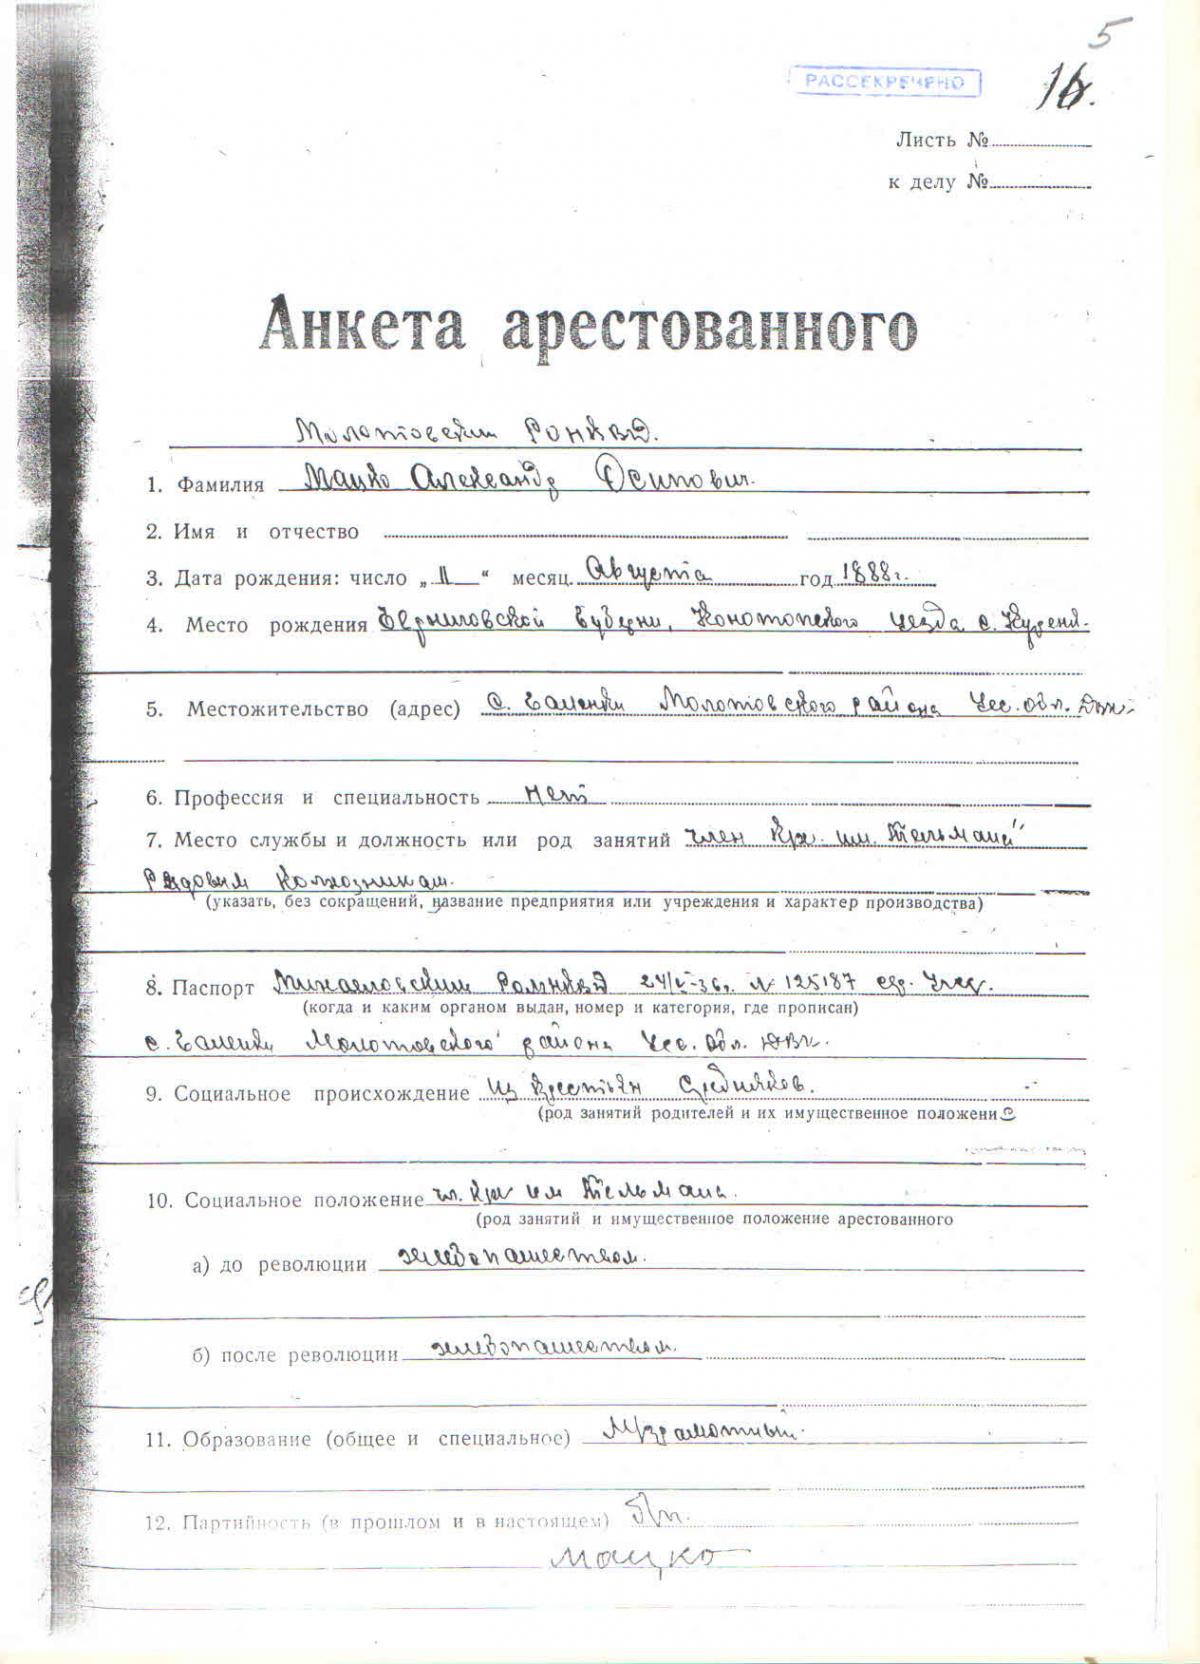 5
РАССЕКРЕЧЕНО
16.
Листь №
к делу №
Анкета арестованного
Молотовским РОНКВД.
1. Фамилия Мацко Александр Осипович.
2. Имя и отчество
3. Дата рождения: число „ “ месяц Августа год 1888 г.
4. Место рождения Черниговской Губерни, Конотопского уезда с. Курени.
5. Местожительство (адрес) с. Галенки Молотовского района Усс. обл. ДВК.
6. Профессия и специальность нет
7. Место службы и должность или род занятий член к/х. им. Тельмана"
Рядовым колхозникам.
(указать, без сокращений, название предприятия или учреждения и характер производства)
8. Паспорт Михайловским 24/V-36г. № 125187
(когда и каким органом выдан, номер и категория, где прописан)
с. Галенки Молотовского района Усс. Обл. ДВК.
9. Социальное происхождение из крестьян Средняков.
(род занятий родителей и их имущественное положение
10. Социальное положение чл. к/х им Тельмана.
(род занятий и имущественное положение арестованного
а) до революции хлебопашеством.
б) после революции хлебопашеством.
11. Образование (общее и специальное) М/грамотный.
12. Партийность (в прошлом и в настоящем) б/п.
Мацко